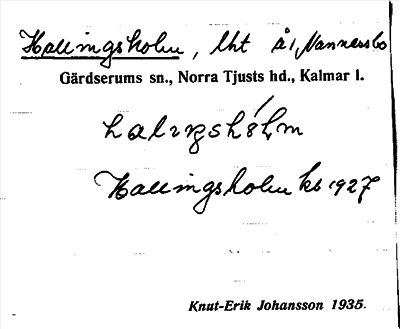 Hallingsholm, lht å 1, Mannersbo
Gärdserums sn., Norra Tjusts hd., Kalmar l.
Hallingsholm kb 1927
Knut-Erik Johansson 1935.